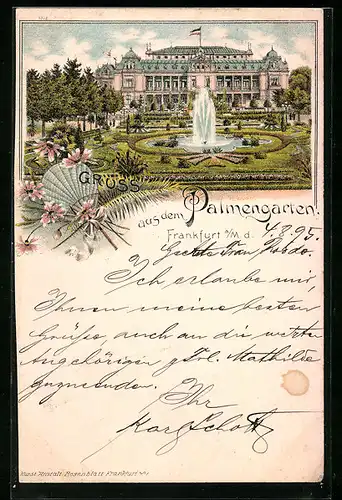 GRUSS
aus dem Palmengarten!
Frankfurt a/M. d. 4.8.95.
Geehrte Frau
Ich erlaube mir,
Ihnen meine besten
Grüße, auch an die werten
Angehörigen & Frl. Mathilde
zuzusenden.
Ihr
Karl Schott
Kunst Anstalt Rosenblatt Frankfurt a/M